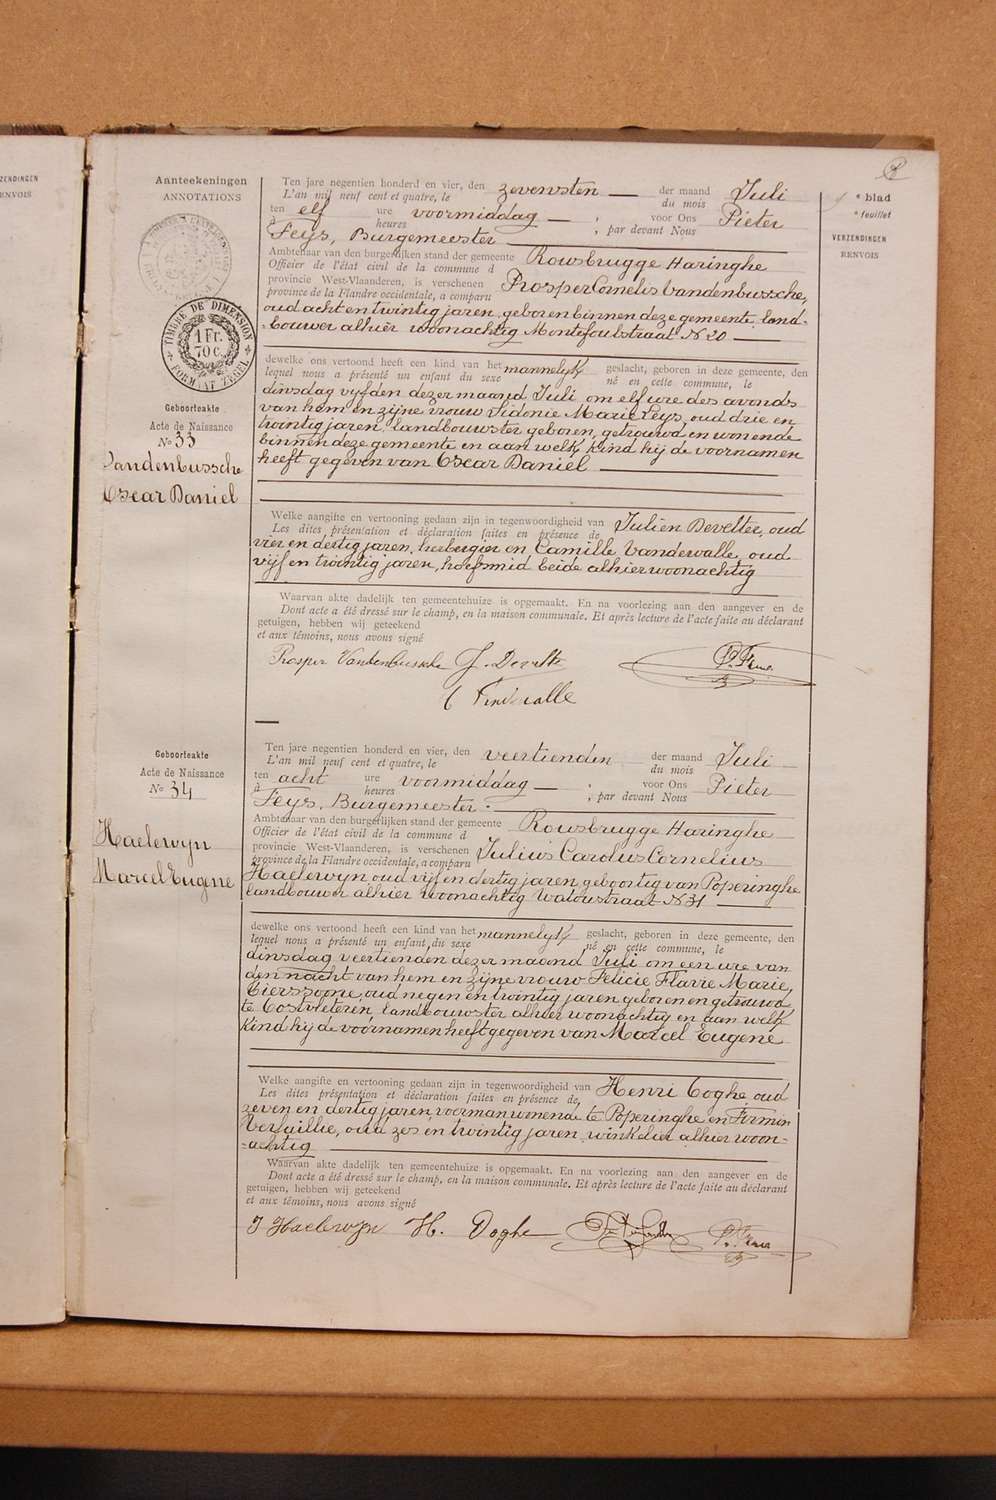 ZENDINGEN
ENVOIS
Aanteekeningen
ANNOTATIONS
TIMBRE DE DIMENSION
1 FR.
70 C.
FORMAAT ZEGEL
Geboorteakte
Acte de Naissance
No 33
Vandenbussche
Oscar Daniel
blad
feuillet
VERZENDINGEN
RENVOIS
Ten jare negentien honderd en vier, den zevensten der maand Juli
L'an mil neuf cent et quatre, le du mois
ten elf ure voormiddag, voor Ons Pieter
à heures , par devant Nous
Feys, Burgemeester
Ambtenaar van den burgerlijken stand der gemeente Rousbrugge Haringhe
Officier de l'état civil de la commune d
provincie West-Vlaanderen, is verschenen Prosper Cornelis Vandenbussche,
province de la Flandre occidentale, a comparu
oud acht en twintig jaren, geboren binnen deze gemeente, land-
-bouwer alhier woonachtig Montefoulstraat No 20
dewelke ons vertoond heeft een kind van het mannelyk geslacht, geboren in deze gemeente, den
lequel nous a présenté un enfant du sexe né en cette commune, le
dinsdag vyfden dezer maand Juli om elf ure des avonds
van hem en zijne vrouw Sidonie Marie Leys, oud drie en
twintig jaren, landbouwster geboren, getrouwd en wonende
binnen deze gemeente en aan welk kind hij de voornamen
heeft gegeven van Oscar Daniel
Welke aangifte en vertooning gedaan zijn in tegenwoordigheid van Julien Develter, oud
Les dites présentation et déclaration faites en présence de
vier en dertig jaren, herbergier en Camille Vandewalle, oud
vijf en twintig jaren, hoefsmid beide alhier woonachtig
Waarvan akte dadelijk ten gemeentehuize is opgemaakt. En na voorlezing aan den aangever en de
Dont acte a été dressé sur le champ, en la maison communale. Et après lecture de l'acte faite au déclarant
getuigen, hebben wij geteekend
et aux témoins, nous avons signé
Prosper Vandenbussche J. Develter P. Feys
C Vandewalle
Geboorteakte
Acte de Naissance
No 34
Haelewyn
Marcel Eugene
Ten jare negentien honderd en vier, den veertienden der maand Juli
L'an mil neuf cent et quatre, le du mois
ten acht ure voormiddag, voor Ons Pieter
à heures , par devant Nous
Feys, Burgemeester.
Ambtenaar van den burgerlijken stand der gemeente Rousbrugge Haringhe
Officier de l'état civil de la commune d
provincie West-Vlaanderen, is verschenen Julius Carolus Cornelius
province de la Flandre occidentale, a comparu
Haelewyn oud vijf en dertig jaren, geboortig van Poperinghe
landbouwer alhier woonachtig Watoustraat No 31
dewelke ons vertoond heeft een kind van het mannelyk geslacht, geboren in deze gemeente, den
lequel nous a présenté un enfant du sexe né en cette commune, le
dinsdag veertienden dezer maand Juli om een ure van
den nacht van hem en zijne vrouw Felicie Flavie Marie
oud negen en twintig jaren geboren en getrouwd
te Oostvleteren, landbouwster alhier woonachtig en aan welk
kind hij de voornamen heeft gegeven van Marcel Eugene
Welke aangifte en vertooning gedaan zijn in tegenwoordigheid van Henri Coghe oud
Les dites présentation et déclaration faites en présence de,
zeven en dertig jaren, voerman wonende te Poperinghe en Firmin
Versaillie, oud zes en twintig jaren, winkelier alhier woon-
-achtig
Waarvan akte dadelijk ten gemeentehuize is opgemaakt. En na voorlezing aan den aangever en de
Dont acte a été dressé sur le champ, en la maison communale. Et après lecture de l'acte faite au déclarant
getuigen, hebben wij geteekend
et aux témoins, nous avons signé
J Haelewyn H. Coghe P. Feys